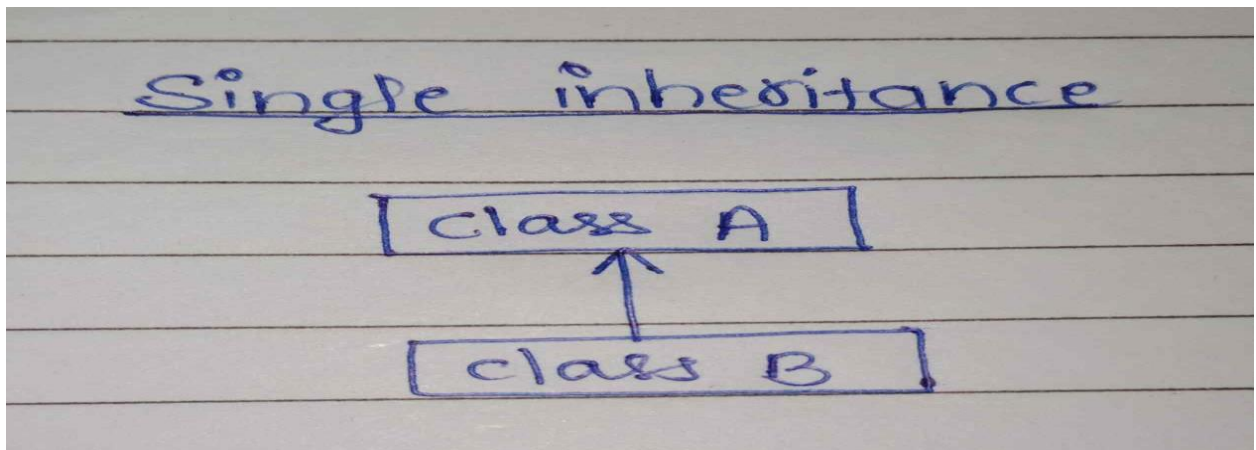 Single inheritance
class A
class B